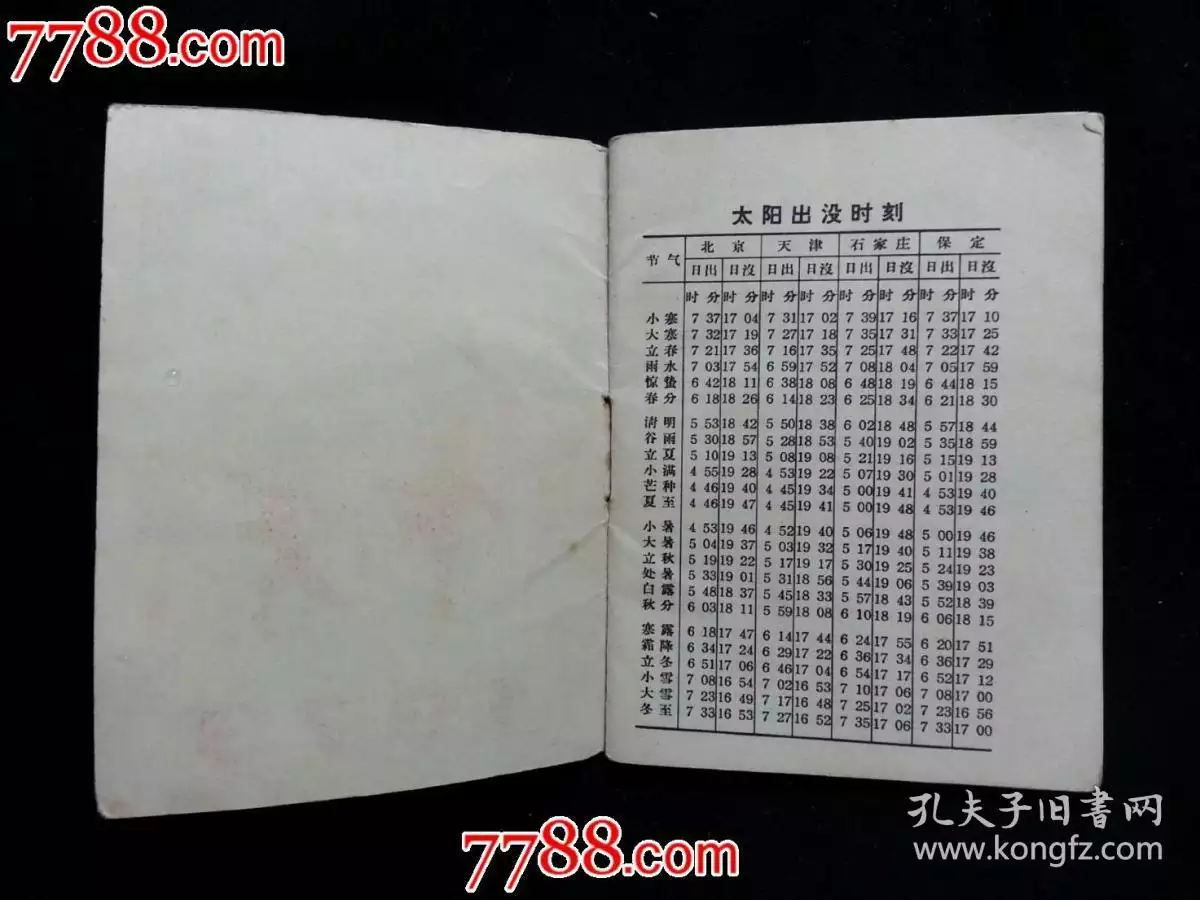 7788.com
太阳出没时刻
节气 北京 天津 石家庄 保定
日出 日沒 日出 日沒 日出 日沒 日出 日沒
时 分 时 分 时 分 时 分 时 分 时 分 时 分 时 分
小寒 7 37 17 04 7 31 17 02 7 39 17 16 7 37 17 10
大寒 7 32 17 19 7 27 17 18 7 35 17 31 7 33 17 25
立春 7 21 17 36 7 16 17 35 7 25 17 48 7 22 17 42
雨水 7 03 17 54 6 59 17 52 7 08 18 04 7 05 17 59
惊蛰 6 42 18 11 6 38 18 08 6 48 18 19 6 44 18 15
春分 6 18 18 26 6 14 18 23 6 25 18 34 6 21 18 30
清明 5 53 18 42 5 50 18 38 6 02 18 48 5 57 18 44
谷雨 5 30 18 57 5 28 18 53 5 40 19 02 5 35 18 59
立夏 5 10 19 13 5 08 19 08 5 21 19 16 5 15 19 13
小满 4 55 19 28 4 53 19 22 5 07 19 30 5 01 19 28
芒种 4 46 19 40 4 45 19 34 5 00 19 41 4 53 19 40
夏至 4 46 19 47 4 45 19 41 5 00 19 48 4 53 19 46
小暑 4 53 19 46 4 52 19 40 5 06 19 48 5 00 19 46
大暑 5 04 19 37 5 03 19 32 5 17 19 40 5 11 19 38
立秋 5 19 19 22 5 17 19 17 5 30 19 25 5 24 19 23
处暑 5 33 19 01 5 31 18 56 5 44 19 06 5 39 19 03
白露 5 48 18 37 5 45 18 33 5 57 18 43 5 52 18 39
秋分 6 03 18 11 5 59 18 08 6 10 18 19 6 06 18 15
寒露 6 18 17 47 6 14 17 44 6 24 17 55 6 20 17 51
霜降 6 34 17 24 6 29 17 22 6 36 17 34 6 36 17 29
立冬 6 51 17 06 6 46 17 04 6 54 17 17 6 52 17 12
小雪 7 08 16 54 7 02 16 53 7 10 17 06 7 08 17 00
大雪 7 23 16 49 7 17 16 48 7 25 17 02 7 23 16 56
冬至 7 33 16 53 7 27 16 52 7 35 17 06 7 33 17 00
孔夫子旧書网
www.kongfz.com
7788.com